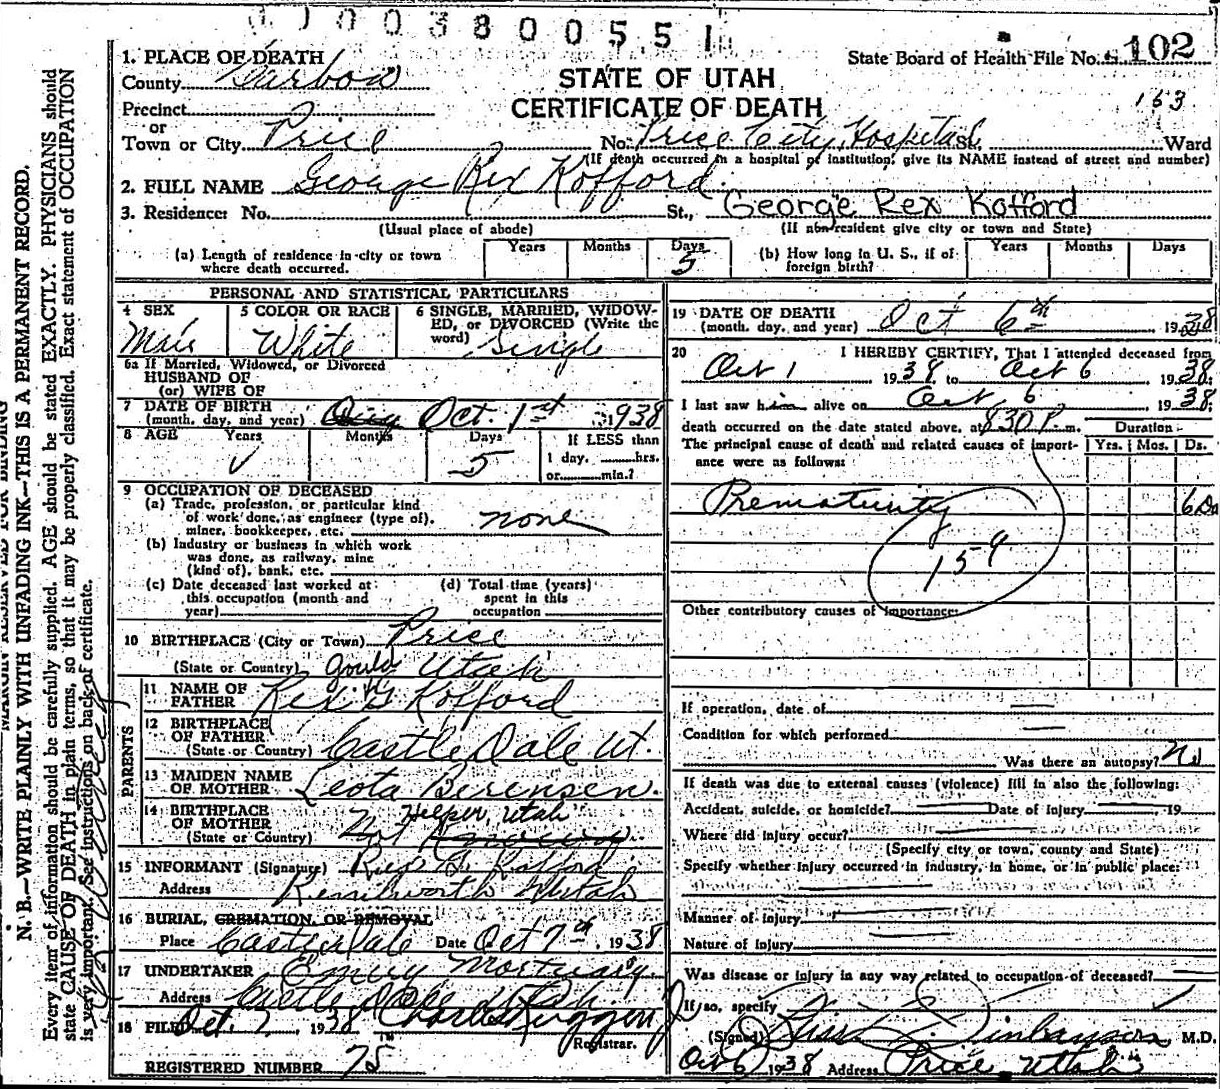 0 1 0 0 3 8 0 0 5 5 1
1. PLACE OF DEATH
State Board of Health File No. 102
County Carbon
STATE OF UTAH
Precinct
CERTIFICATE OF DEATH
163
or
Town or City Price No. Price City Hospital St. Ward
(If death occurred in a hospital or institution, give its NAME instead of street and number)
2. FULL NAME George Rex Kofford.
3. Residence: No. St., George Rex Kofford
(Usual place of abode) (If non resident give city or town and State)
(a) Length of residence in city or town where death occurred. Years Months Days 5
(b) How long in U. S., if of foreign birth? Years Months Days
PERSONAL AND STATISTICAL PARTICULARS
4 SEX Male
5 COLOR OR RACE White
6 SINGLE, MARRIED, WIDOWED, or DIVORCED (Write the word) Single
6a If Married, Widowed, or Divorced
HUSBAND OF
(or) WIFE OF
7 DATE OF BIRTH (month, day, and year) Oct. 1st 1938
8 AGE Years Months Days 5 If LESS than 1 day, hrs. or min.?
9 OCCUPATION OF DECEASED
(a) Trade, profession, or particular kind of work done, as engineer (type of), miner, bookkeeper, etc. none
(b) Industry or business in which work was done, as railway, mine (kind of), bank, etc.
(c) Date deceased last worked at this occupation (month and year)
(d) Total time (years) spent in this occupation
10 BIRTHPLACE (City or Town) Price
(State or Country) Utah
PARENTS
11 NAME OF FATHER Rex G Kofford
12 BIRTHPLACE OF FATHER (State or Country) Castle Dale Ut.
13 MAIDEN NAME OF MOTHER Leota Berensen.
14 BIRTHPLACE OF MOTHER (State or Country) Helper, Utah
Not Known
15 INFORMANT (Signature) Rex G Kofford
Address Kenilworth Utah
16 BURIAL, CREMATION, OR REMOVAL
Place Castle Dale Date Oct 7th, 1938
17 UNDERTAKER Emery Mortuary.
Address Castle Dale Utah.
18 FILED Oct. 7, 1938 Registrar.
REGISTERED NUMBER 75
19 DATE OF DEATH (month, day, and year) Oct 6th 1938
20 I HEREBY CERTIFY, That I attended deceased from
Oct 1 1938, to Oct 6 1938
I last saw him alive on Oct 6 1938
death occurred on the date stated above, at 830 P m.
Duration
The principal cause of death and related causes of importance were as follows: Yrs. Mos. Ds.
Prematurity 6 Da
159
Other contributory causes of importance:
If operation, date of
Condition for which performed
Was there an autopsy? No
If death was due to external causes (violence) fill in also the following:
Accident, suicide, or homicide? Date of injury 19
Where did injury occur?
(Specify city or town, county and State)
Specify whether injury occurred in industry, in home, or in public place:
Manner of injury
Nature of Injury
Was disease or injury in any way related to occupation of deceased?
If so, specify
(Signed) M.D.
Oct 6 1938 Address Price Utah
MARGIN RESERVED FOR BINDING
N. B.—WRITE PLAINLY WITH UNFADING INK—THIS IS A PERMANENT RECORD.
Every item of information should be carefully supplied. AGE should be stated EXACTLY. PHYSICIANS should
state CAUSE OF DEATH in plain terms, so that it may be properly classified. Exact statement of OCCUPATION
is very important. See instructions on back of certificate.